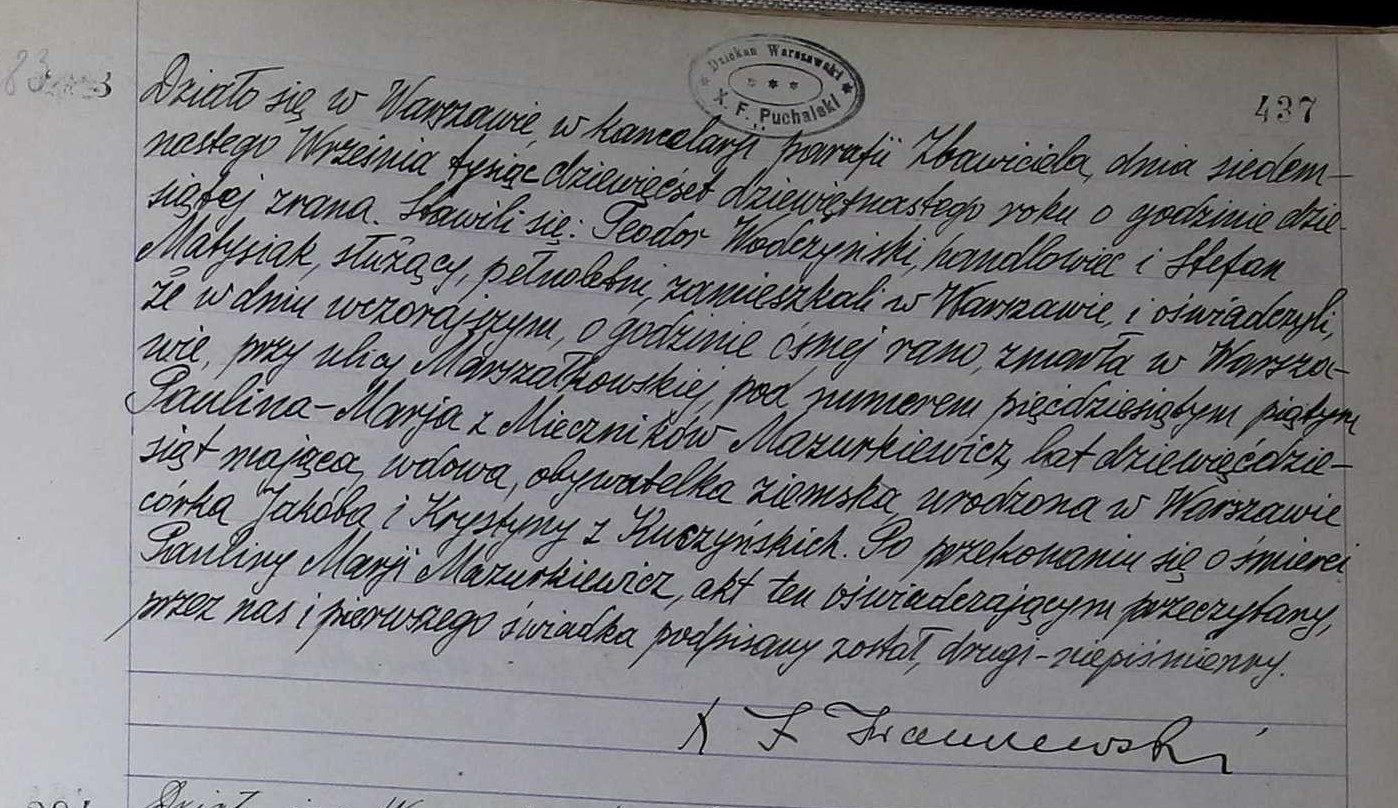 Dziekan Warszawski
X. F. Puchalski
437
83
Działo się w Warszawie, w kancelarji parafii Zbawiciela, dnia siedem-
nastego Września tysiąc dziewięćset dziewiętnastego roku o godzinie dzie-
siątej zrana. Stawili się: Teodor Wodczyński, handlowiec i Stefan
Matysiak, służący, pełnoletni, zamieszkali w Warszawie, i oświadczyli,
że w dniu wczorajszym, o godzinie ósmej rano, zmarła w Warsza-
wie, przy ulicy Marszałkowskiej, pod numerem pięćdziesiątym piątym
Paulina-Marja z Mieczników Mazurkiewicz, lat dziewięćdzie-
siąt mająca, wdowa, obywatelka ziemska, urodzona w Warszawie
córka Jakóba i Krystyny z Kuczyńskich. Po przekonaniu się o śmierci
Pauliny Marji Mazurkiewicz, akt ten oświadczającym przeczytany,
przez nas i pierwszego świadka podpisany został, drugi-niepiśmienny.
X F
Działo